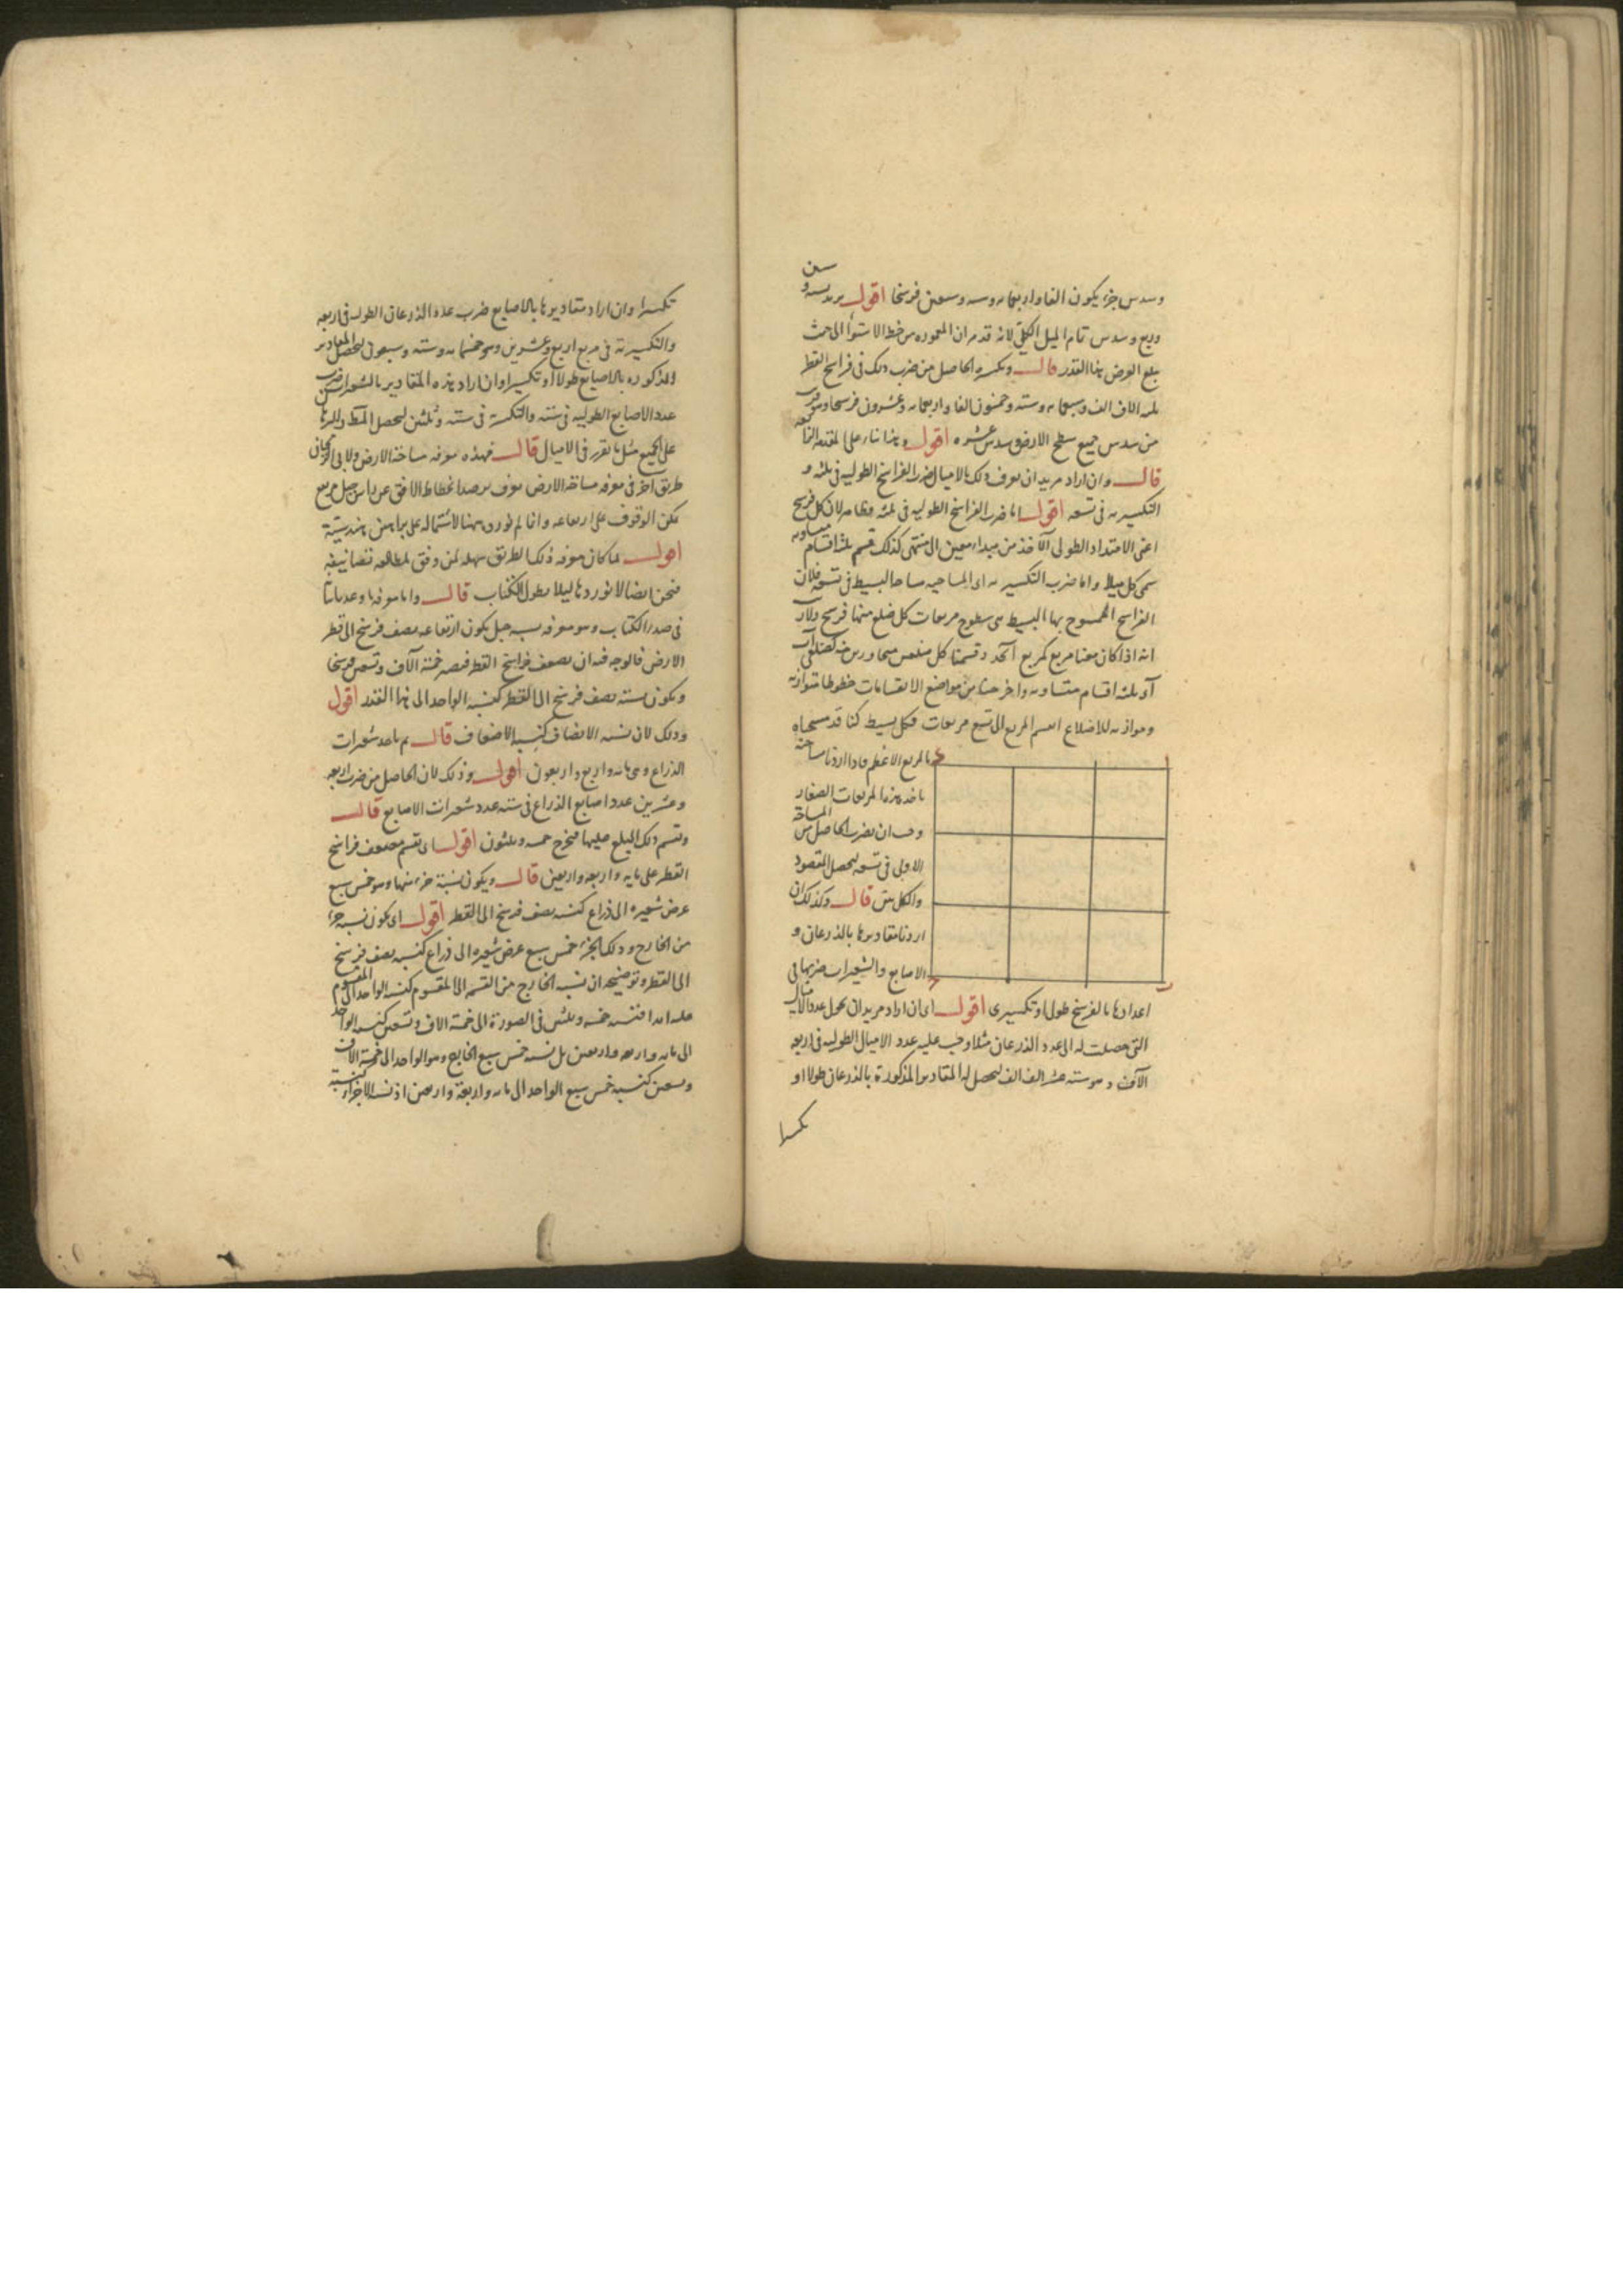 وسدس جزء يكون الفا واربعمايه وسه وسبعين فرسخا اقول يريد بسته و
ستين
وربع وسدس تمام الميل الكلي لانه قد مر ان المعموره من خط الاستوا الى حيث
يبلغ العرض هذا القدر قال وتكسيره الحاصل من ضرب ذلك في فراسخ القطر
ثلثه الاف الف وسبعمايه وسته وخمسون الفا واربعمايه وعشرون فرسخا وهو
من سدس جميع سطح الارض سدس عشره اقول وهذا بناء على المقدمة
قال وان اراد مريد ان يعرف ذلك بالاميال ضرب الفراسخ الطوليه في ثلثه و
التكسيريه في تسعه اقول اما ضرب الفراسخ الطوليه في ثلثه فظاهر لان كل فرسخ
اعنى الامتداد الطولى الآخذ من مبداء معين الى منتهى كذلك قسم بثلثه اقسام متساويه
سمى كل ميلا واما ضرب التكسيريه اى المساحيه مساحا البسيط في تسعه فلان
الفراسخ الممسوح بها البسيط هى سطوح مربعات كل ضلع منها فرسخ ولان
انه اذا كان معنا مربع كمربع ا ب ج د وقسمنا كل ضلعين متجاورين منه كضلعى ا ب
ا د بثلثه اقسام متساويه واخرجنا من مواضع الانقسامات خطوطا متوازيه
وموازيه للاضلاع انقسم المربع الى تسع مربعات فكل بسيط كنا قد مسحناه
بالمربع الاعظم فاذا اردنا مساحته
باحد هذه المربعات الصغار
وجب ان نضرب الحاصل من المساحة
الاولى في تسعه ليحصل المقصود
والكل بين قال وكذلك ان
اردنا مقاديرها بالذرعان و
الاصابع والشعيرات ضربها في
اعدادها بالفرسخ طولى او تكسيرى اقول اى ان اراد مريد ان يحول عدد الاميال
التى حصلت له الى عدد الذرعان مثلا وجب عليه عدد الاميال الطوليه في اربعه
الآف وهو سته عشر الف الف ليحصل له المقادير المذكورة بالذرعان طولا او
تكسيرا
تكسيرا وان اراد مقاديرها بالاصابع ضرب عدد الذرعان الطوليه في اربعه
والتكسيرية في مربع اربع وعشرين وهو خمسمايه وسته وسبعون ليحصل المقادير
المذكوره بالاصابع طولا او تكسيرا وان اراد هذه المقادير بالشعيرات ضرب
عدد الاصابع الطوليه في سته والتكسيريه في سته وثلثين ليحصل
على الجميع مثل ما تقرر في الاميال قال فهذه معرفه مساحة الارض ولابى الريحان
طريق آخر في معرفه مساحة الارض يعرف برصد انحطاط الافق عن راس جبل مربع
يمكن الوقوف على ارتفاعه وانما لم نورده ههنا لاشتماله على براهين هندسية
اقول لما كان معرفه ذلك الطريق سهله لمن وفق لمطالعه تصانيفه
فنحن ايضا لا نوردها ليلا يطول الكتاب قال واما معرفة ما وعدناه
في صدر الكتاب وهو معرفه نسبه جبل يكون ارتفاعه نصف فرسخ الى قطر
الارض فالوجه فيه ان نضعف فراسخ القطر فيصير خمسة آلاف وتسعين فرسخا
ويكون نسبة نصف فرسخ الى القطر كنسبه الواحد الى هذا القدر اقول
وذلك لان نسبه الانصاف كنسبه الاضعاف قال ثم ناخذ شعيرات
الذراع وهى مايه واربع واربعون اقول وذلك لان الحاصل من ضرب اربعه
وعشرين عدد اصابع الذراع في سته عدد شعيرات الاصابع قال
ونقسم ذلك المبلغ عليها فيخرج خمسه وثلثون اقول اى نقسم مضعف فراسخ
القطر على مايه واربعه واربعين قال ويكون نسبة جزء منها وهو خمس سبع
عرض شعيره الى ذراع كنسبه نصف فرسخ الى القطر اقول اى يكون نسبه جزء
من الخارج وذلك الجزء خمس سبع عرض شعيره الى ذراع كنسبه نصف فرسخ
الى القطر وتوضيحه ان نسبه الخارج من القسمه الى المقسوم كنسبه الواحد الى المقسوم
عليه ابدا فنسبه خمسه وثلثين في الصورة الى خمسة الاف وتسعين كنسبه الواحد
الى مايه واربعه واربعين بل نسبه خمس سبع الخارج وهو الواحد الى خمسة الاف
وتسعين كنسبه خمس سبع الواحد الى مايه واربعة واربعين اذ نسبه الاجزاء كنسبة